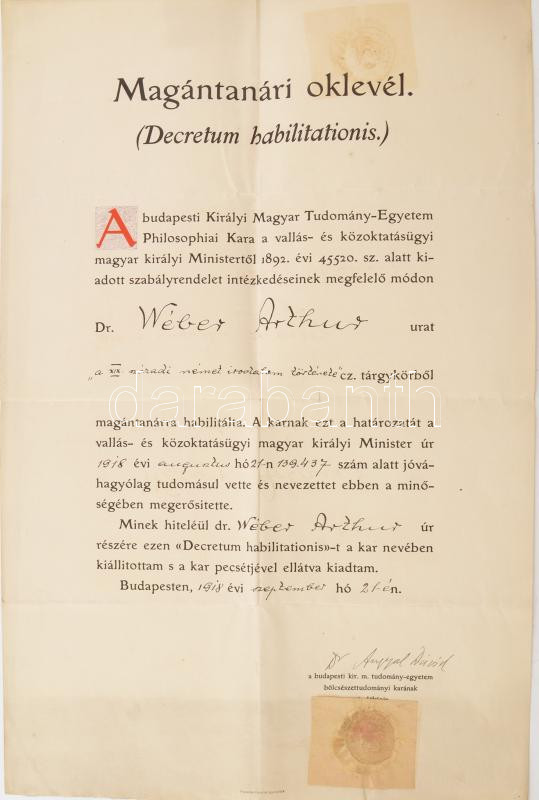 Magántanári oklevél.
(Decretum habilitationis.)
A budapesti Királyi Magyar Tudomány-Egyetem
Philosophiai Kara a vallás- és közoktatásügyi
magyar királyi Ministertől 1892. évi 45520. sz. alatt ki-
adott szabályrendelet intézkedéseinek megfelelő módon
Dr. Wéber Arthur urat
„a XIX századi német irodalom története" cz. tárgykörből
darabanth
magántanárra habilitálta. A karnak ezt a határozatát a
vallás- és közoktatásügyi magyar királyi Minister úr
1918 évi augusztus hó 21-n 139.437 szám alatt jóvá-
hagyólag tudomásul vette és nevezettet ebben a minő-
ségében megerősitette.
Minek hiteléül dr. Wéber Arthur úr
részére ezen «Decretum habilitationis»-t a kar nevében
kiállitottam s a kar pecsétjével ellátva kiadtam.
Budapesten, 1918 évi szeptember hó 21-én.
Dr Angyal Dávid
a budapesti kir. m. tudomány-egyetem
bölcsészettudományi karának